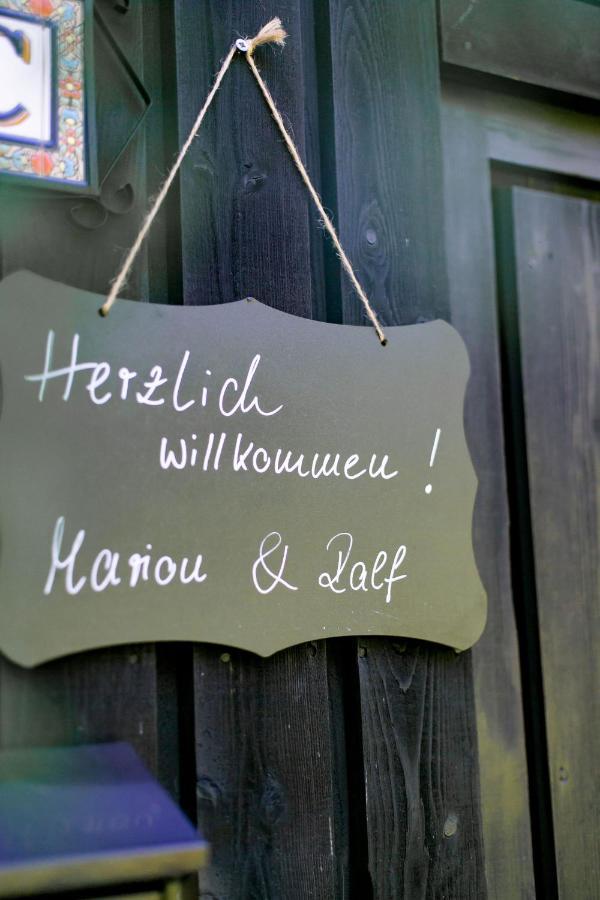 C
Herzlich
willkommen !
Marion & Ralf